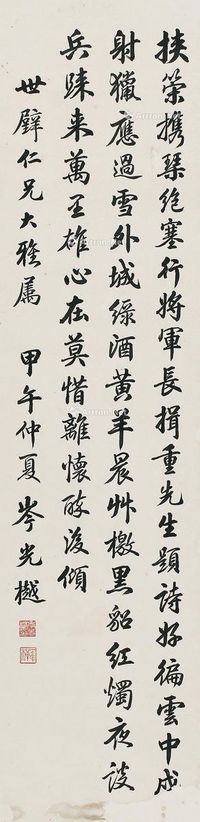 挾策攜琴絕塞行將軍長揖重先生題詩好徧雲中戍
射獵應過雪外城綠酒黃羊晨艸檄黑貂紅燭夜談
兵歸来萬里雄心在莫惜離懷醉後傾
世璧仁兄大雅屬 甲午仲夏 岑光樾